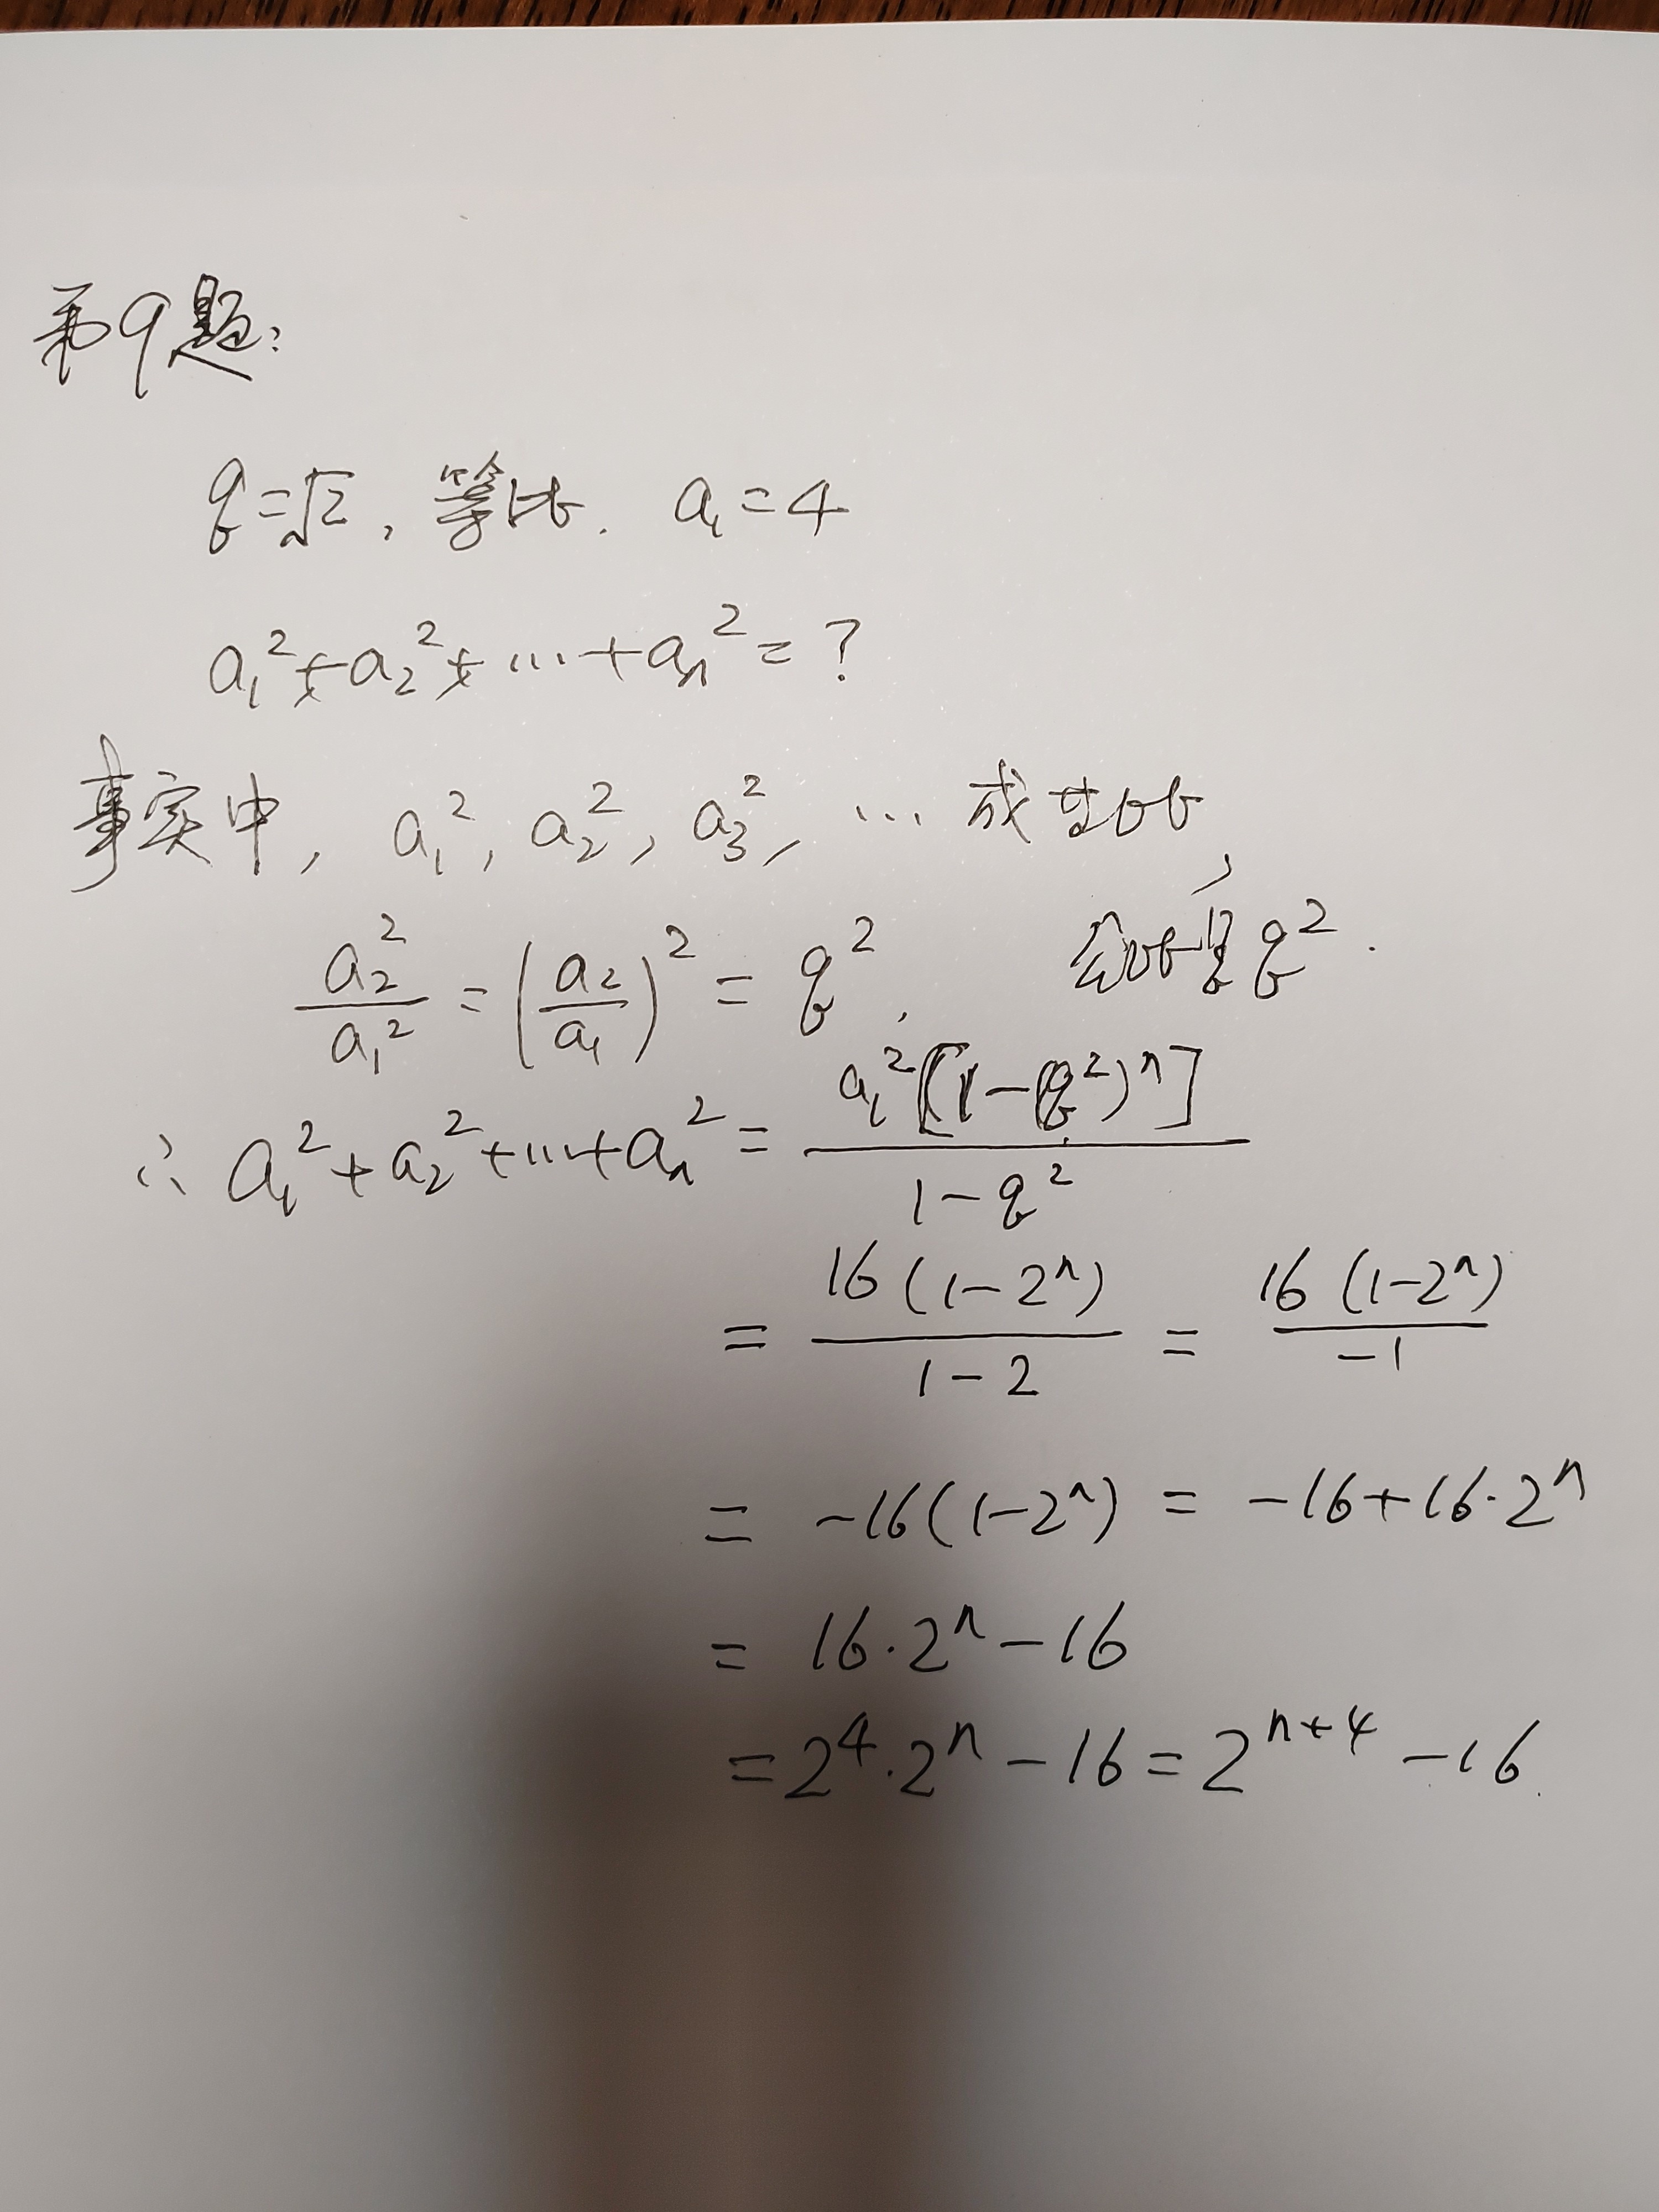 第9题:
q=√2, 等比. a₁=4
a₁²+a₂²+…+aₙ²=?
事实中, a₁², a₂², a₃², … 成等比,
a₂²/a₁² = (a₂/a₁)² = q², 公比是q².
∴ a₁²+a₂²+…+aₙ² = a₁²[1-(q²)ⁿ]/(1-q²)
= 16(1-2ⁿ)/(1-2) = 16(1-2ⁿ)/(-1)
= -16(1-2ⁿ) = -16+16·2ⁿ
= 16·2ⁿ-16
= 2⁴·2ⁿ-16 = 2ⁿ⁺⁴-16.